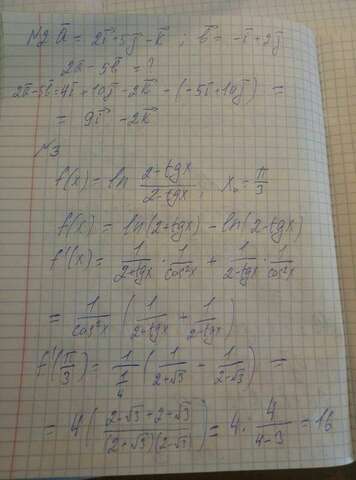 №2 a̅ = 2i⃗+5j⃗-k⃗ ; b⃗ = -i⃗+2j⃗
2a̅ - 5b̅ = ?
2a̅-5b̅=4i⃗+10j⃗-2k⃗ -(-5i⃗+10j⃗) =
= 9i⃗ -2k⃗
№3
f(x) = ln (2+tgx)/(2-tgx), x₀ = π/3
f(x) = ln(2+tgx) - ln(2-tgx)
f'(x) = 1/(2+tgx) · 1/cos²x + 1/(2-tgx) · 1/cos²x
= 1/cos²x (1/(2+tgx) + 1/(2-tgx))
f'(π/3) = 1/(1/4) (1/(2+√3) - 1/(2-√3)) =
= 4((2-√3+2+√3)/((2+√3)(2-√3))) = 4 · 4/(4-3) = 16